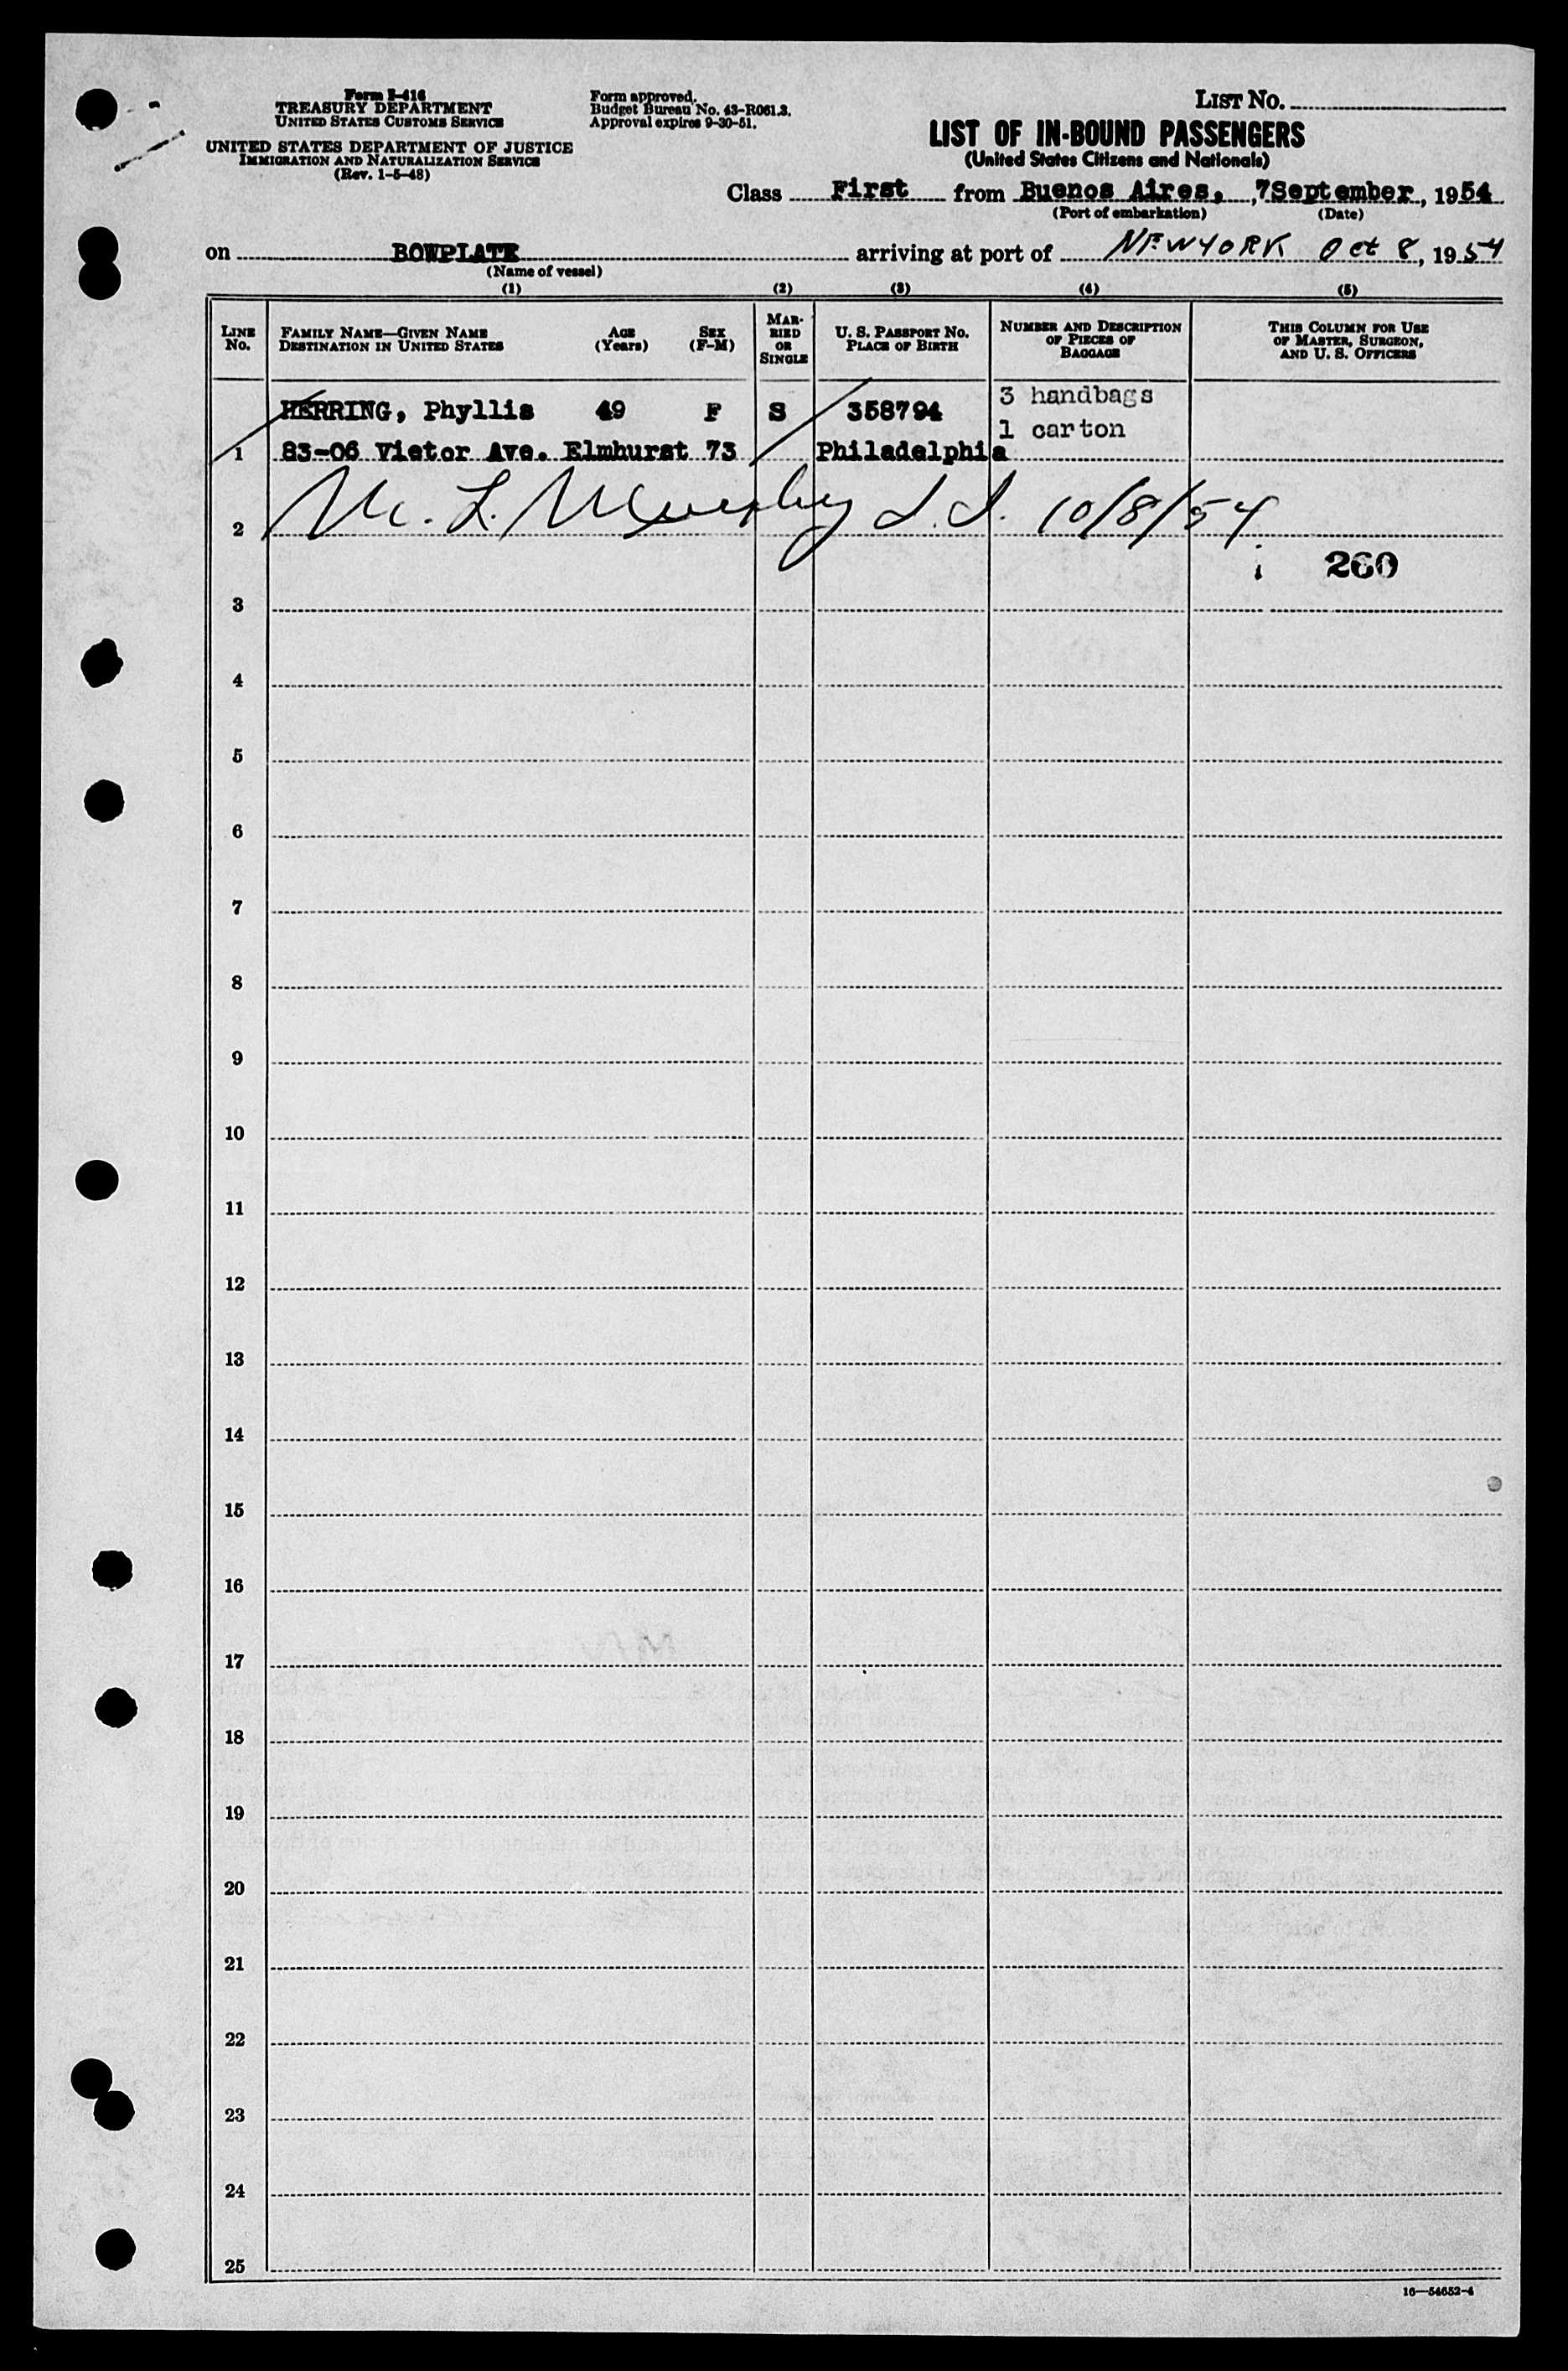 Form I-416
TREASURY DEPARTMENT
UNITED STATES CUSTOMS SERVICE
UNITED STATES DEPARTMENT OF JUSTICE
IMMIGRATION AND NATURALIZATION SERVICE
(Rev. 1-5-48)
Form approved.
Budget Bureau No. 43-R061.3.
Approval expires 9-30-51.
LIST NO.
LIST OF IN-BOUND PASSENGERS
(United States Citizens and Nationals)
Class First from Buenos Aires, 7September, 1954
(Port of embarkation) (Date)
on BOWPLATE arriving at port of NEW YORK Oct 8, 1954
(Name of vessel)
(1) (2) (3) (4) (5)
LINE NO.
FAMILY NAME—GIVEN NAME
DESTINATION IN UNITED STATES
AGE (Years)
SEX (F-M)
MARRIED OR SINGLE
U. S. PASSPORT NO.
PLACE OF BIRTH
NUMBER AND DESCRIPTION OF PIECES OF BAGGAGE
THIS COLUMN FOR USE OF MASTER, SURGEON, AND U. S. OFFICERS
HERRING, Phyllis 49 F S 358794 3 handbags
1 carton
1 83-06 Vietor Ave. Elmhurst 73 Philadelphia
M. L. Murphy I.I. 10/8/54
2
260
3
4
5
6
7
8
9
10
11
12
13
14
15
16
17
18
19
20
21
22
23
24
25
16—54652-4